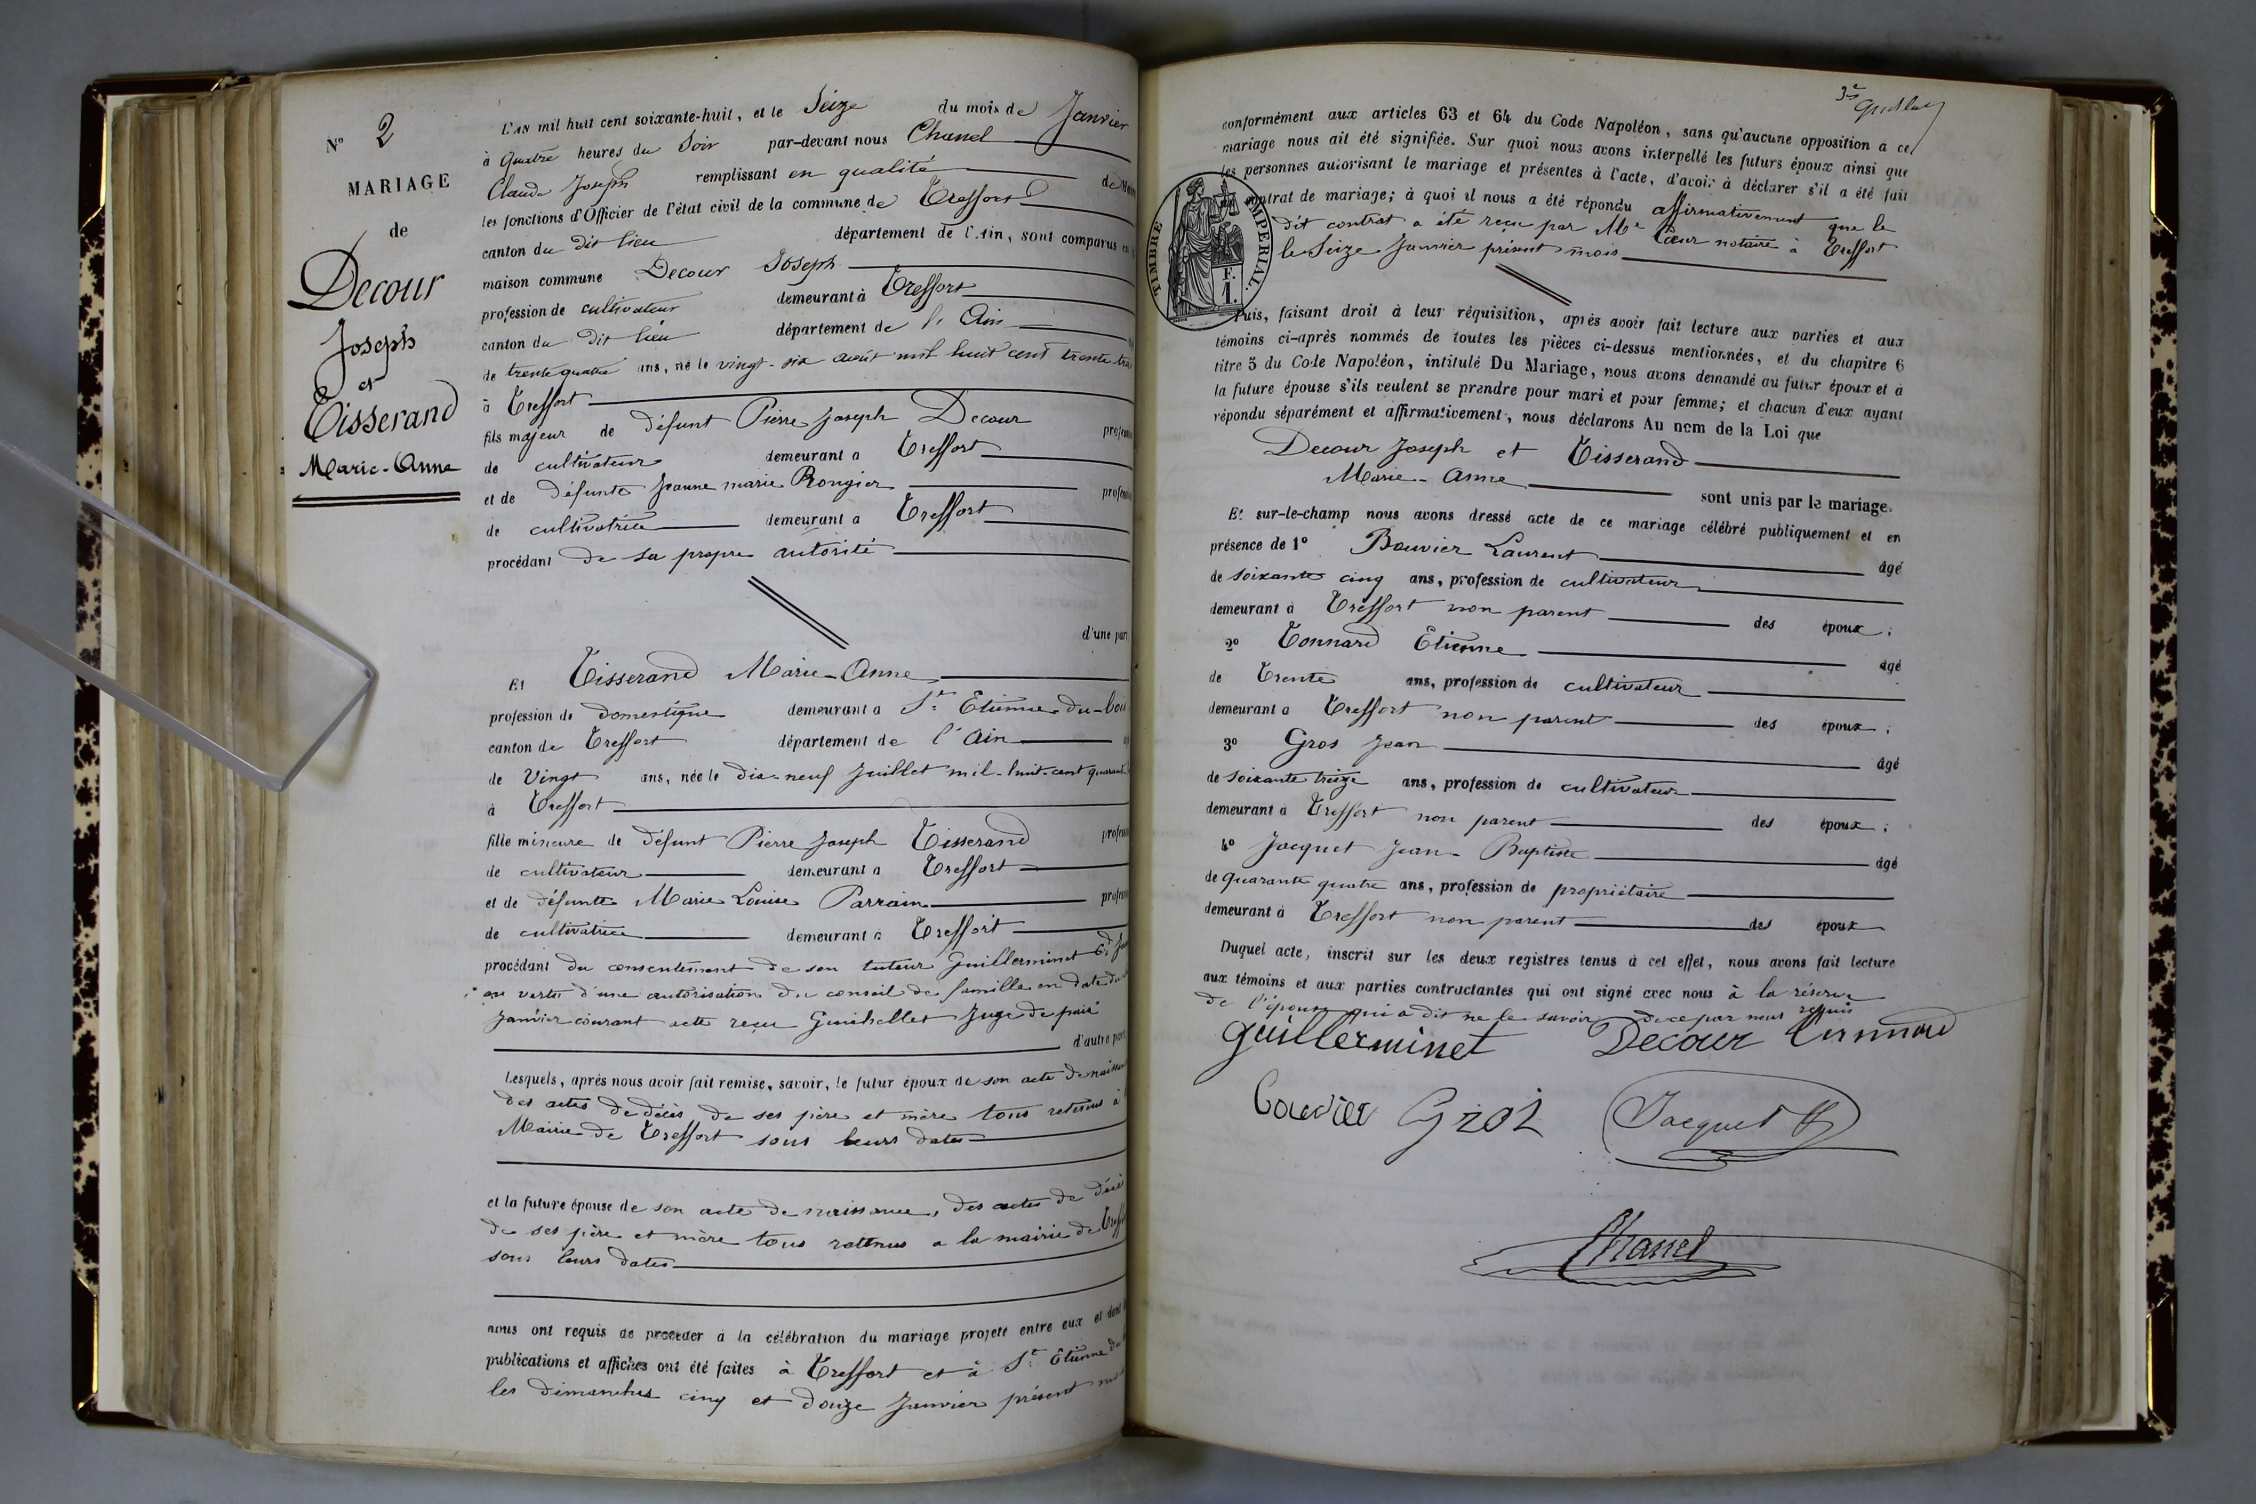 N° 2
MARIAGE
de
Decour
Joseph
et
Tisserand
Marie-Anne
L'AN mil huit cent soixante-huit, et le Seize du mois de Janvier
à Quatre heures du Soir par-devant nous Chanel
Claude Joseph remplissant en qualité de
les fonctions d'Officier de l'état civil de la commune de Treffort
canton du dit lieu département de l'Ain, sont comparus en
maison commune Decour Joseph
profession de cultivateur demeurant à Treffort
canton du dit lieu département de l'Ain
de trente quatre ans, né le vingt-six août mil huit cent trente trois
à Treffort
fils majeur de défunt Pierre Joseph Decour profession
de cultivateur demeurant a Treffort
et de défunte Jeanne marie Rongier profession
de cultivatrice demeurant a Treffort
procédant de sa propre autorité
d'une part
Et Tisserand Marie-Anne
profession de domestique demeurant a St Etienne-du-bois
canton de Treffort département de l'Ain
de Vingt ans, née le dix-neuf Juillet mil-huit-cent quarante
à Treffort
fille mineure de défunt Pierre Joseph Tisserand profession
de cultivateur demeurant a Treffort
et de défunte Marie Louise Parrain profession
de cultivatrice demeurant à Treffort
procédant du consentement de son tuteur Guillerminet
en vertu d'une autorisation du conseil de famille en date du
Janvier courant acte reçu Guichellet Juge de paix
d'autre part
Lesquels, après nous avoir fait remise, savoir, le futur époux de son acte de naissance
des actes de décès de ses père et mère tous retenus à
Mairie de Treffort sous leurs dates
et la future épouse de son acte de naissance, des actes de décès
de ses père et mère tous retenus a la mairie de Treffort
sous leurs dates
nous ont requis de proceder à la célébration du mariage projeté entre eux et dont
publications et affiches ont été faites à Treffort et à St Etienne du
les dimanches cinq et douze Janvier présent mois
conformément aux articles 63 et 64 du Code Napoléon, sans qu'aucune opposition à ce
mariage nous ait été signifiée. Sur quoi nous avons interpellé les futurs époux ainsi que
les personnes autorisant le mariage et présentes à l'acte, d'avoir à déclarer s'il a été fait
contrat de mariage; à quoi il nous a été répondu affirmativement que le
dit contrat a été reçu par Me Cœur notaire à Treffort
le Seize Janvier présent mois
TIMBRE IMPERIAL.
F.
1.
Puis, faisant droit à leur réquisition, après avoir fait lecture aux parties et aux
témoins ci-après nommés de toutes les pièces ci-dessus mentionnées, et du chapitre 6
titre 5 du Code Napoléon, intitulé Du Mariage, nous avons demandé au futur époux et à
la future épouse s'ils veulent se prendre pour mari et pour femme; et chacun d'eux ayant
répondu séparément et affirmativement, nous déclarons Au nom de la Loi que
Decour Joseph et Tisserand
Marie-Anne sont unis par le mariage.
Et sur-le-champ nous avons dressé acte de ce mariage célébré publiquement et en
présence de 1° Bouvier Laurent âgé
de soixante cinq ans, profession de cultivateur
demeurant à Treffort non parent des époux;
2° Tonnard Etienne âgé
de Trente ans, profession de cultivateur
demeurant a Treffort non parent des époux;
3° Gros Jean âgé
de soixante treize ans, profession de cultivateur
demeurant à Treffort non parent des époux;
4° Jacquet Jean-Baptiste âgé
de quarante quatre ans, profession de propriétaire
demeurant à Treffort non parent des époux
Duquel acte, inscrit sur les deux registres tenus à cet effet, nous avons fait lecture
aux témoins et aux parties contractantes qui ont signé avec nous à la réserve
de l'épouse qui a dit ne le savoir de ce par nous requis
guillerminet Decour tonnard
bouvier Gros Jacquet
Chanel